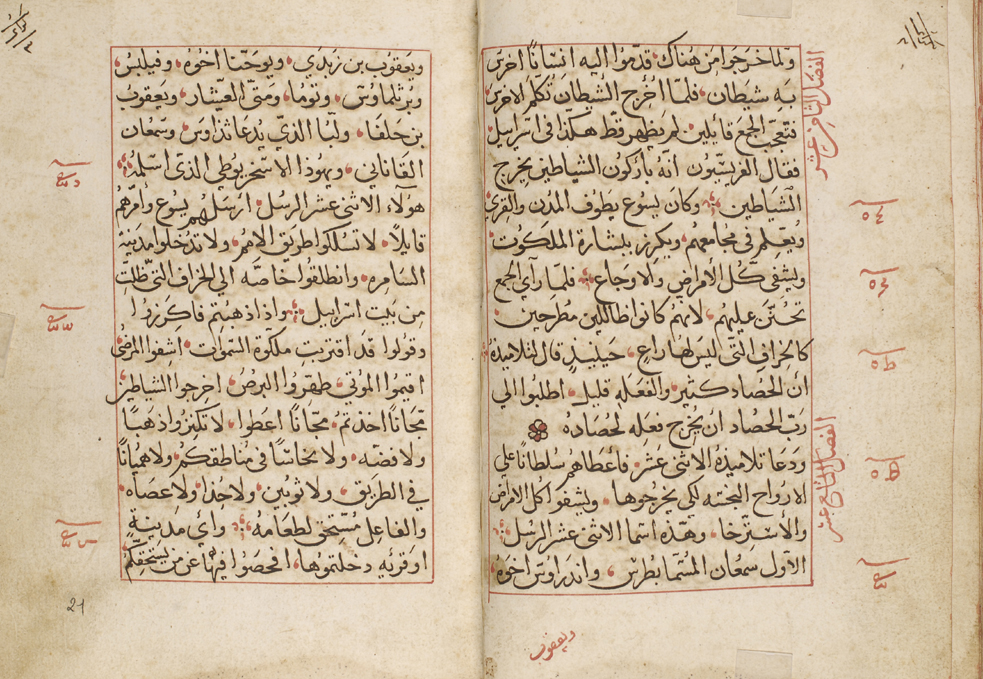 ولما خرجوا من هناك قدموا اليه انسانًا اخرس
به شيطان فلما اخرج الشيطان تكلم الاخرس
فتعجب الجمع قايلين لم يظهر قط هكذا في اسراييل
فقال الفريسيون انه باركون الشياطين يخرج
الشياطين وكان يسوع يطوف المدن والقرى
ويعلم في مجامعهم ويكرز ببشارة الملكوت
ويشفي كل الامراض والاوجاع فلما راي الجمع
تحنن عليهم لانهم كانوا ظاللين مطرحين
كالخراف التي ليس لها راع حينيذٍ قال لتلاميذه
ان الحصاد كثير والفعله قليل اطلبوا الي
رب الحصاد ان يخرج فعله لحصاده
ودعا تلاميذه الاثني عشر فاعطاهم سلطانًا علي
الارواح النجسه لكي يخرجوها ويشفوا كل الامراض
والاسترخا وهذه اسما الاثني عشر الرسل
الاول سمعان المسما بطرس واندراوس اخوه
ويعقوب
الفصل الثامن عشر
الفصل التاسع عشر
ويعقوب بن زبدي ويوحنا اخوه وفيلبس
وبرثلماوس وتوما ومتى العشار ويعقوب
بن حلفا ولبا الذي يدعا تداوس وسمعان
القاناني ويهودا الاسخريوطي الذي اسلمه
هولاء الاثني عشر الرسل ارسلهم يسوع وامرهم
قايلًا لا تسلكوا طريق الامم ولا تدخلوا مدينة
السامره وانطلقوا خاصه الي الخراف التي ظلت
من بيت اسراييل واذا ذهبتم فاكرزوا
وقولوا قد اقتربت ملكوة السموات اشفوا المرضى
اقيموا الموتي طهروا البرص اخرجوا الشياطين
مجانًا اخذتم مجانًا اعطوا لا تكنزوا ذهبًا
ولا فضه ولا نحاسًا في مناطقكم ولا هميانًا
في الطريق ولا ثوبين ولا حذا ولا عصاه
والفاعل مستحق لطعامه واي مدينة
او قريه دخلتموها افحصوا فيها عن من يستحقكم
21